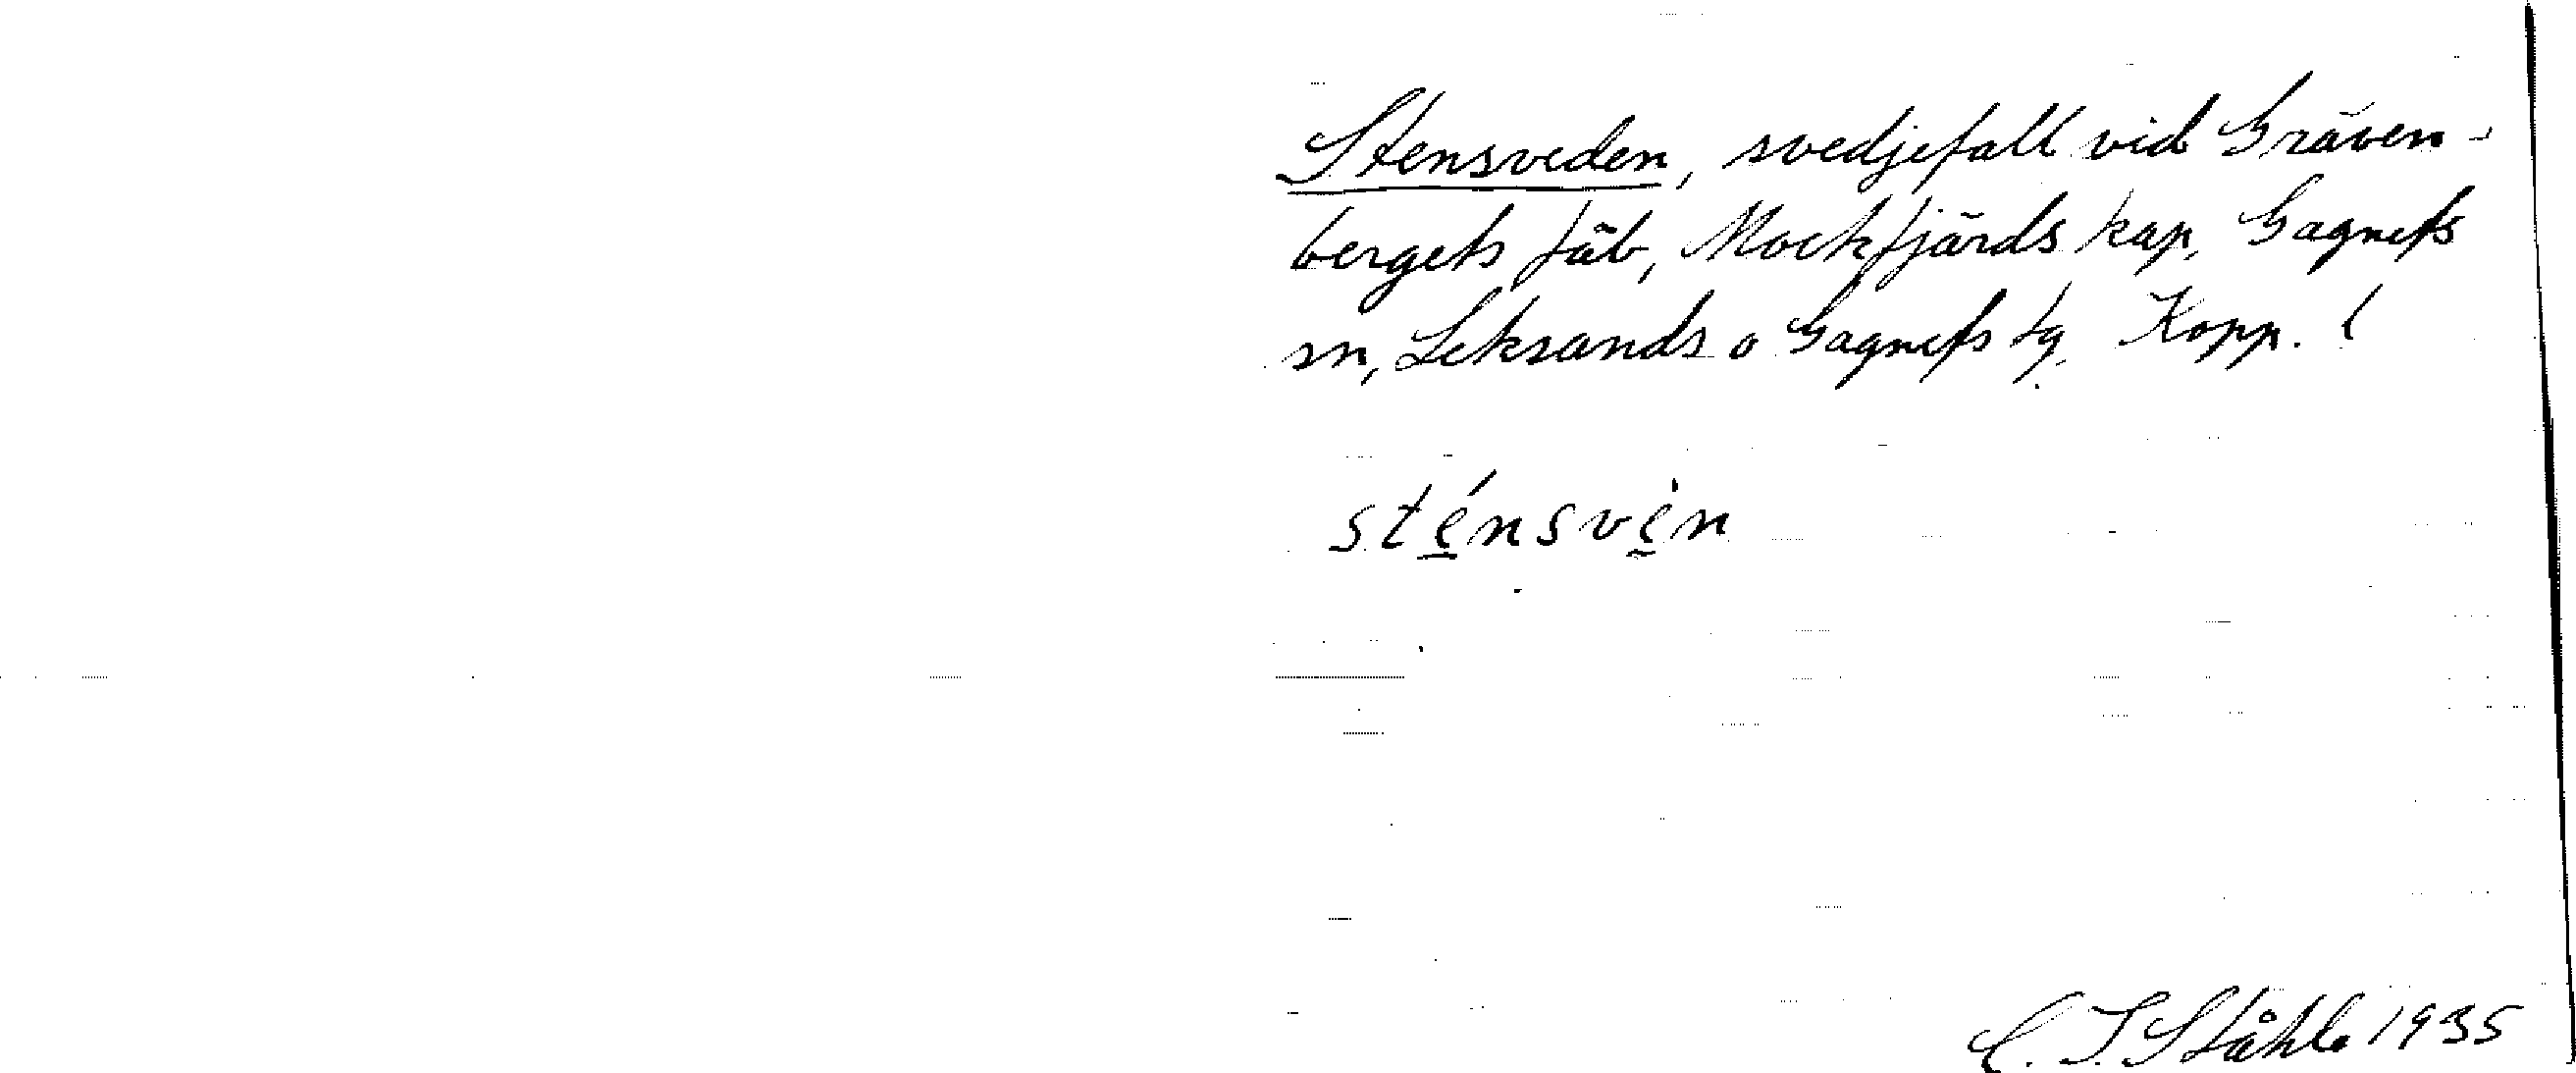 Stensveden, svedjefall vid Gräven-
bergets fäb, Mockfjärds kap, Gagnefs
sn, Leksands o Gagnefs tg. Kopp. l
sté̠nsvè̠n
C. I. Ståhle 1935